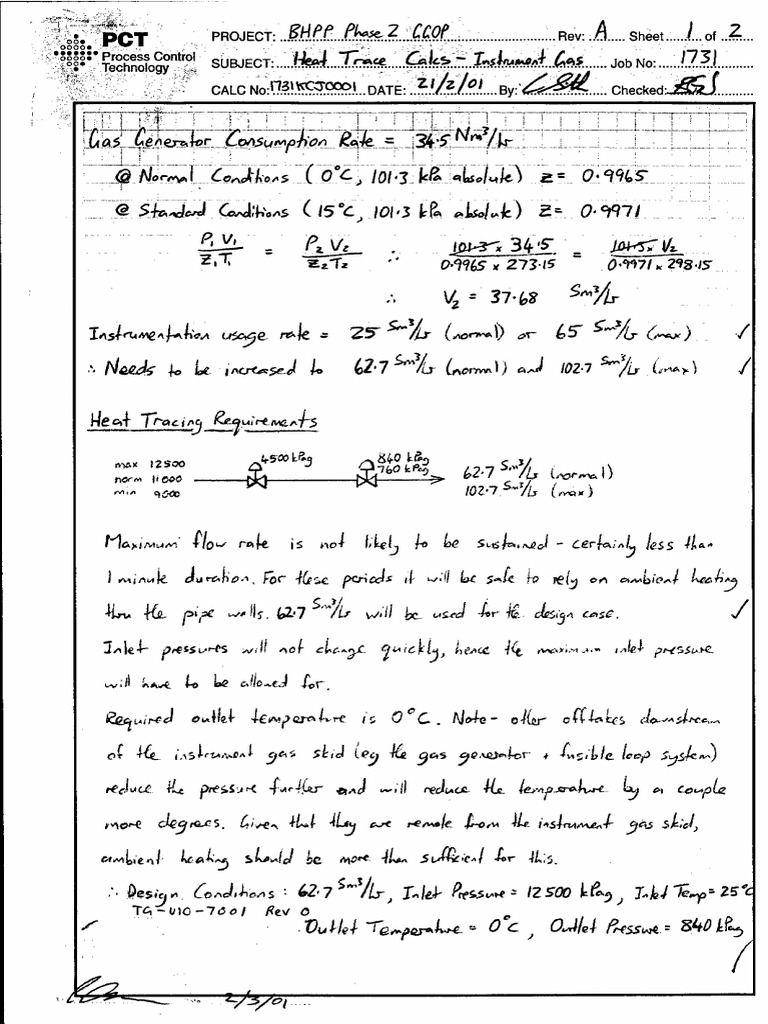 PCT
Process Control
Technology
PROJECT: BHPP Phase 2 CCOP Rev: A Sheet 1 of 2
SUBJECT: Heat Trace Calcs - Instrument Gas Job No: 1731
CALC No: 1731KCJ0001 DATE: 21/2/01 By: Checked:
Gas Generator Consumption Rate = 34.5 Nm³/hr
@ Normal Conditions (0°C, 101.3 kPa absolute) Z = 0.9965
@ Standard Conditions (15°C, 101.3 kPa absolute) Z = 0.9971
P₁V₁/Z₁T₁ = P₂V₂/Z₂T₂ ∴ 101.3 x 34.5/0.9965 x 273.15 = 101.3 x V₂/0.9971 x 298.15
∴ V₂ = 37.68 Sm³/hr
Instrumentation usage rate = 25 Sm³/hr (normal) or 65 Sm³/hr (max) ✓
∴ Needs to be increased to 62.7 Sm³/hr (normal) and 102.7 Sm³/hr (max) ✓
Heat Tracing Requirements
max 12500
norm 11000
min 9500
4500 kPag
840 kPag
760 kPag
62.7 Sm³/hr (normal)
102.7 Sm³/hr (max)
Maximum flow rate is not likely to be sustained - certainly less than
1 minute duration. For these periods it will be safe to rely on ambient heating
thru the pipe walls. 62.7 Sm³/hr will be used for the design case. ✓
Inlet pressures will not change quickly, hence the maximum inlet pressure
will have to be allowed for.
Required outlet temperature is 0°C. Note - other offtakes downstream
of the instrument gas skid (eg the gas generator + fusible loop system)
reduce the pressure further and will reduce the temperature by a couple
more degrees. Given that they are remote from the instrument gas skid,
ambient heating should be more than sufficient for this.
∴ Design Conditions: 62.7 Sm³/hr, Inlet Pressure = 12500 kPag, Inlet Temp = 25°C
TG-U10-7001 Rev 0
✓ Outlet Temperature = 0°C, Outlet Pressure = 840 kPag
✓
2/3/01